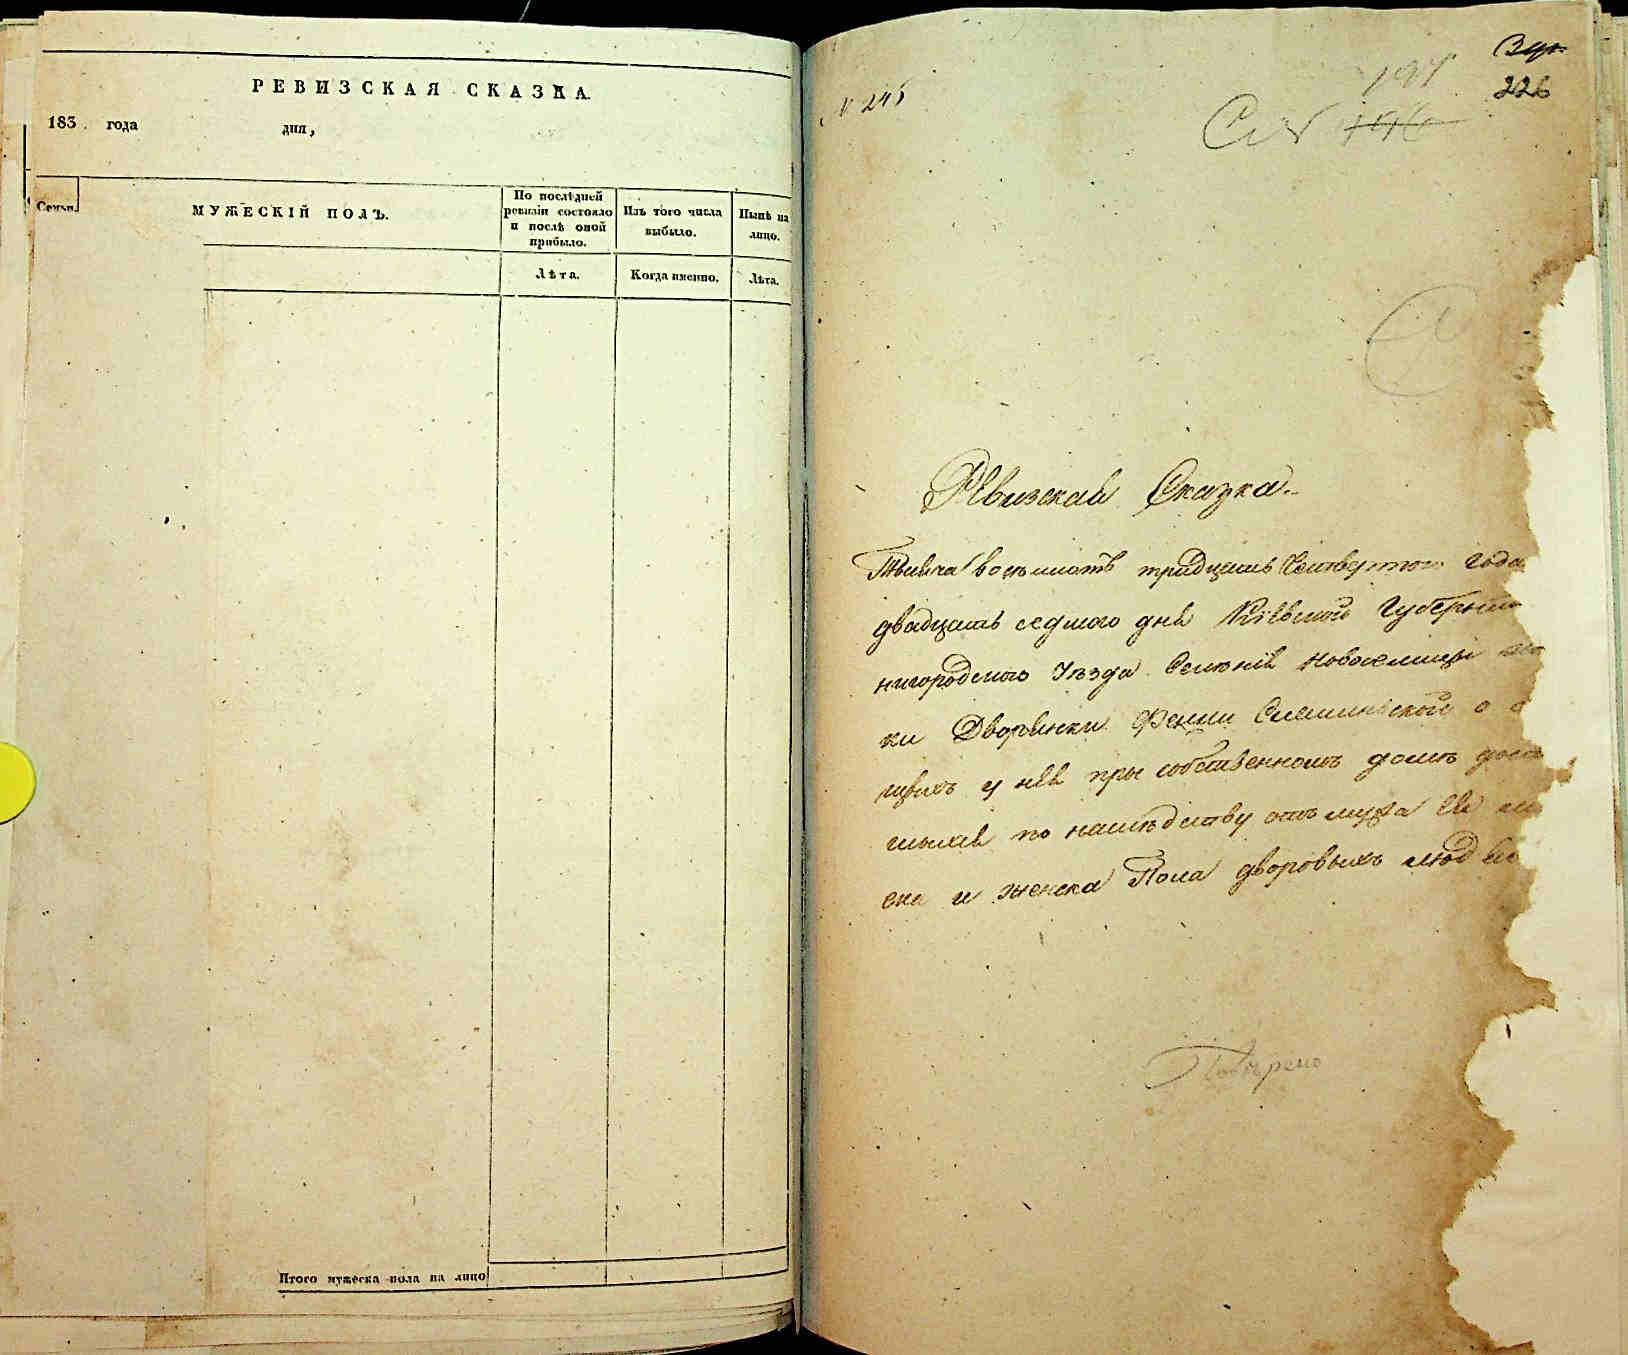 РЕВИЗСКАЯ СКАЗКА.
183 . года дня,
Семьи.
МУЖЕСКІЙ ПОЛЪ.
По послѣдней
ревизіи состояло
и послѣ оной
прибыло.
Изъ того числа
выбыло.
Нынѣ на
лицо.
Лѣта.
Когда именно.
Лѣта.
Итого мужеска пола на лицо
№ 245
226
Ревизская Сказка.
Тысяча восемьсотъ тридцать Четвертого года
двадцать седмого дня Кіевской Губерніи
нигородского Уѣзда Селенія Новоселицы
ки Дворянки
щихъ у нея при собственномъ домѣ
по наслѣдству отъ мужа Ея
ска и женска Пола дворовыхъ людѣ
Повѣрено